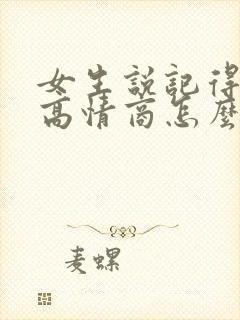 女生説記得
高情商怎麼
麦螺